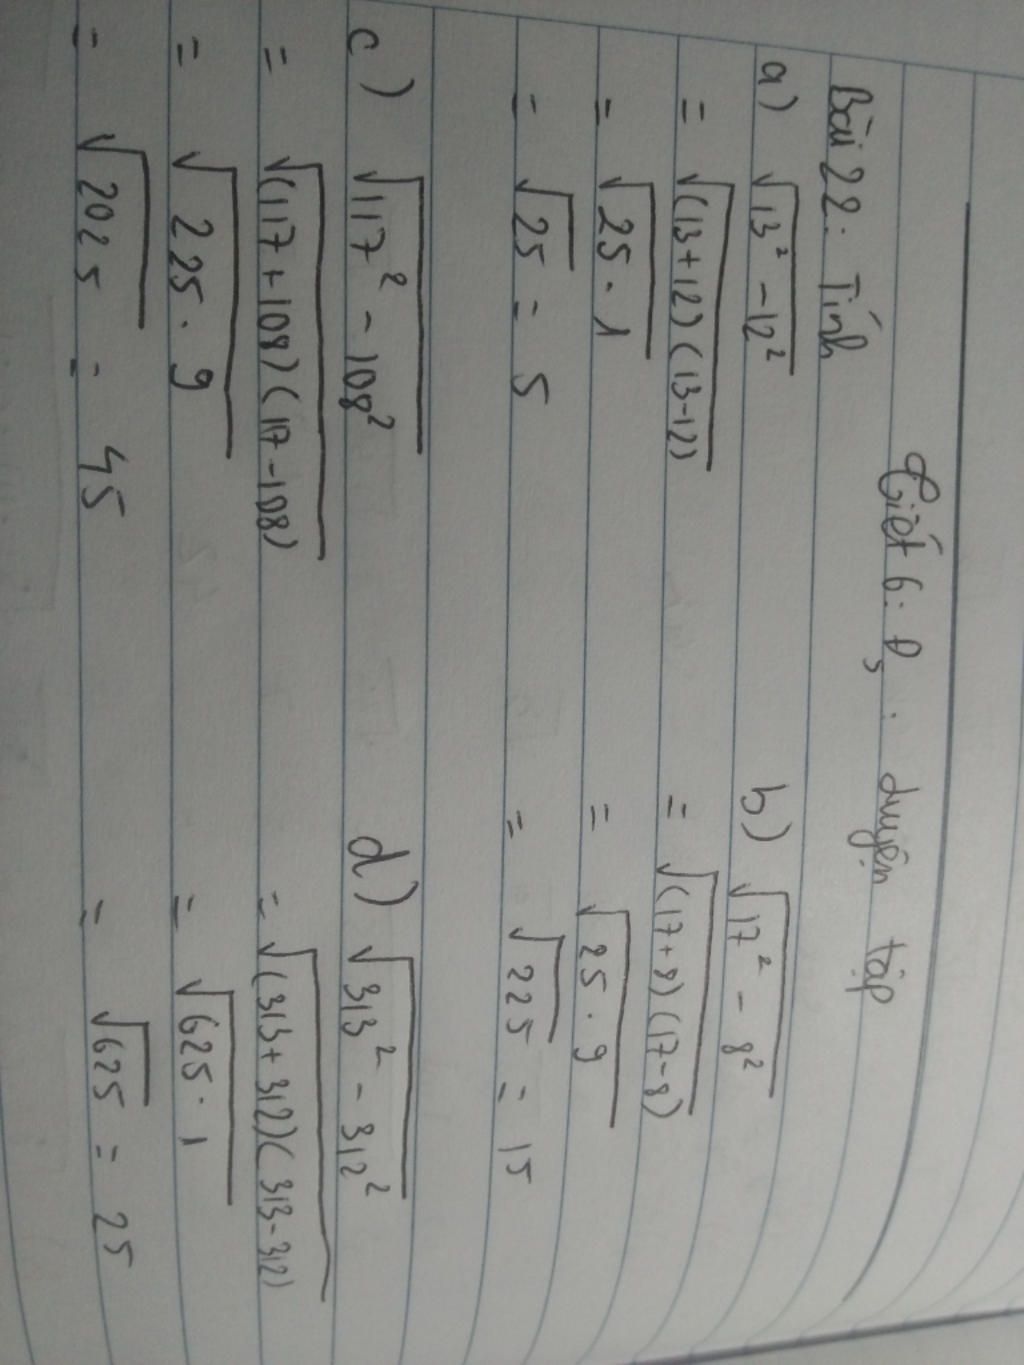 Tiết 6: luyện tập
Bài 22: Tính
a) √13² - 12²
= √(13+12)(13-12)
= √25 . 1
= √25 = 5
b) √17² - 8²
= √(17+8)(17-8)
= √25 . 9
= √225 = 15
c) √117² - 108²
= √(117+108)(17-108)
= √225 . 9
= √2025 = 45
d) √313² - 312²
= √(313+312)(313-312)
= √625 . 1
= √625 = 25